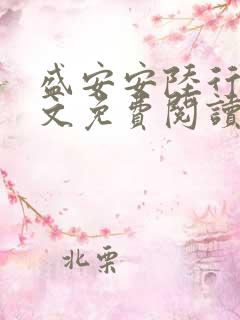 盛安安陸行
文免費閱讀
北栗